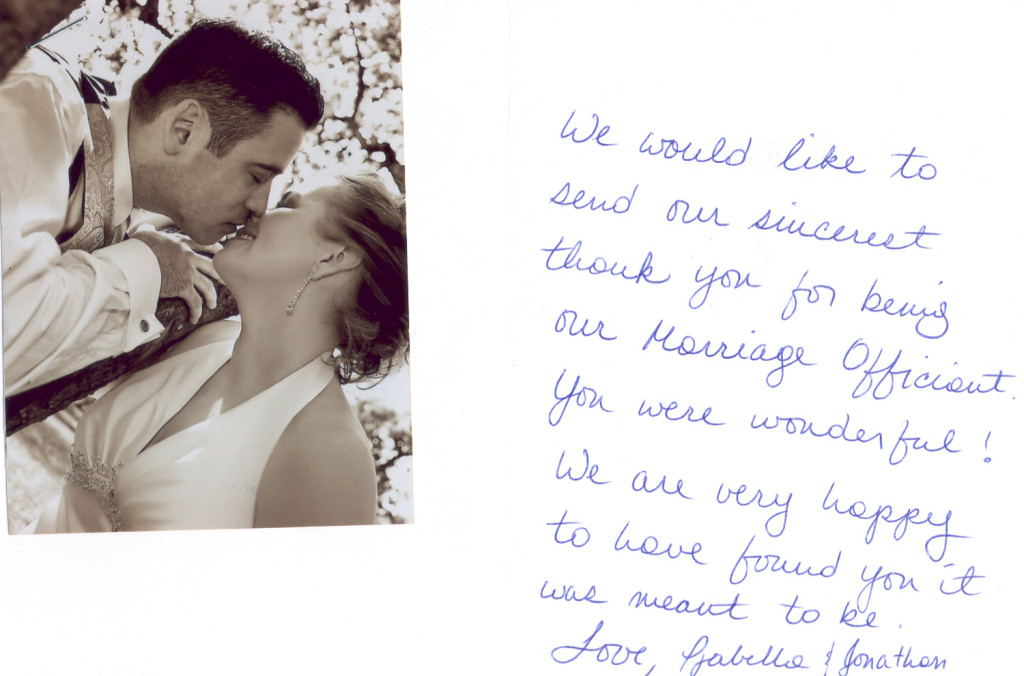 We would like to
send our sincerest
thank you for being
our Marriage Officiant.
You were wonderful!
We are very happy
to have found you it
was meant to be.
Love, & Jonathan